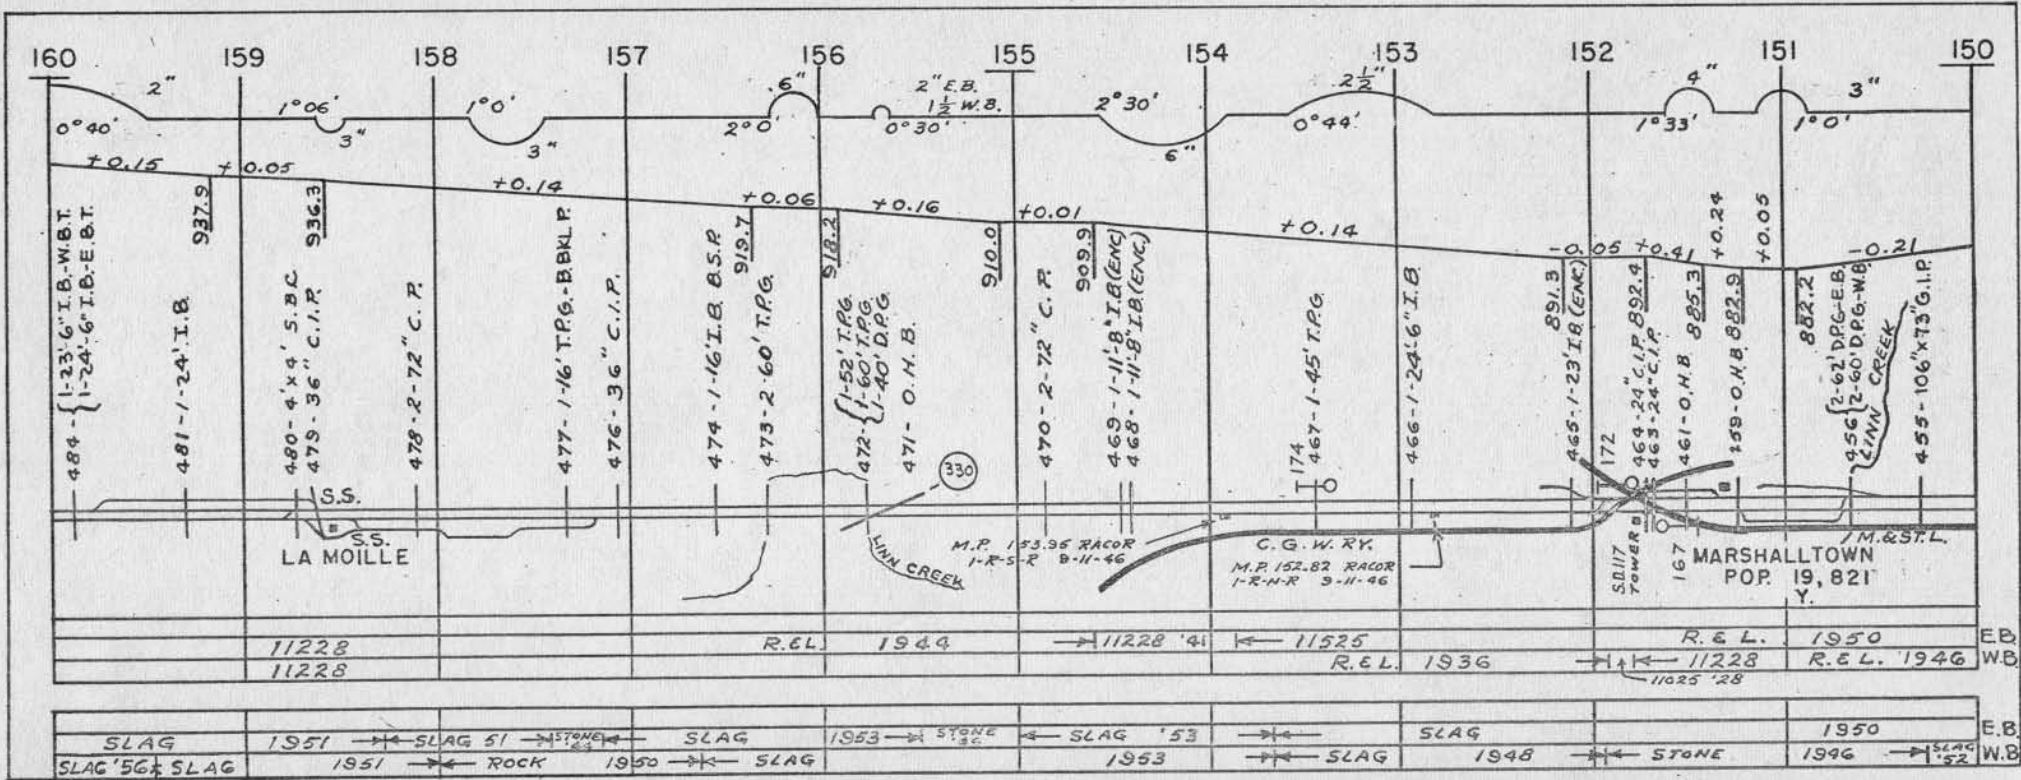 160 159 158 157 156 155 154 153 152 151 150
2" 1°06' 1°0' 6" 2" E.B. 2°30' 2½" 4" 3"
1½ W.B.
0°40' 3" 3" 2°0' 0°30' 6" 0°44' 1°33' 1°0'
+0.15 +0.05 +0.14 +0.06 +0.16 +0.01 +0.14 -0.05 +0.41 +0.24 +0.05 -0.21
937.9 936.3 919.7 918.2 910.0 909.9 891.3 892.4 885.3 882.9 882.2
484-{1-23'-6" I.B.-W.B.T.
{1-24'-6" I.B-E.B.T.
481-1-24' I.B.
480-4'x4' S.B.C.
479-36" C.I.P.
478-2-72" C.P.
477-1-16' T.P.G.-B.BKL.P.
476-36" C.I.P.
474-1-16' I.B. B.S.P.
473-2-60' T.P.G.
472-{1-52' T.P.G.
{1-60' T.P.G.
{1-40' D.P.G.
471-O.H.B.
470-2-72" C.P.
469-1-11'-8" I.B(ENC)
468-1-11'-8" I.B.(ENC.)
174
467-1-45' T.P.G.
466-1-24'-6" I.B
465-1-23' I.B.(ENC.)
172
464-24" C.I.P.
463-24" C.I.P.
461-O.H.B
459-O.H.B.
456{2-62' D.P.G-E.B.
{2-60' D.P.G.-W.B
LINN CREEK
455-106"x73" G.I.P.
S.S.
S.S.
LA MOILLE
330
LINN CREEK
M.P. 153.95 RACOR
1-R-S-R 9-11-46
C.G.W.RY.
M.P. 152.82 RACOR
1-R-N-R 9-11-46
S.D.117
TOWER B
167
M.&ST.L.
MARSHALLTOWN
POP. 19,821
Y.
11228 R.&L. 1944 11228 '41 11525 R.&L. 1950 E.B.
11228 R.&L. 1936 11228 R.&L. 1946 W.B.
11025 '28
SLAG 1951 SLAG 51 STONE SLAG 1953 STONE SLAG '53 SLAG 1950 E.B.
SLAG '56 SLAG 1951 ROCK 1950 SLAG 1953 SLAG 1948 STONE 1946 SLAG '52 W.B